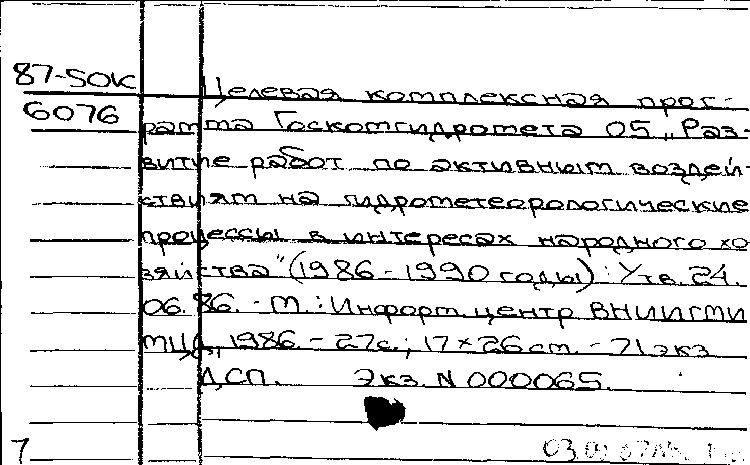 87-5OK Целевая комплексная прог-
6076 рамма Госкомгидромета 05 „Раз-
витие работ по активным воздей-
ствиям на гидрометеорологические
процессы в интересах народного хо
зяйства" (1986-1990 годы): Утв. 24.
06.86. - М.: Информ. центр ВНИИГМИ
МЦД, 1986. - 27с.; 17×26 см. - 71 экз
ДСП. Экз. N 000065.
7